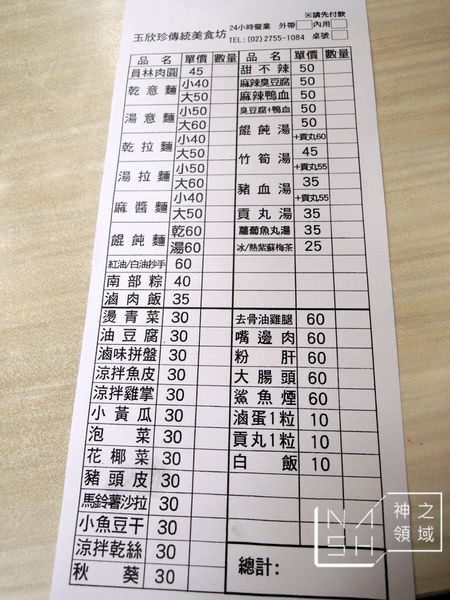 ※請先付款
玉欣珍傳統美食坊 24小時營業 外帶□內用□
TEL:(02)2755-1084 桌號□
品名 單價 數量 品名 單價 數量
員林肉圓 45
乾意麵 小40
大50
湯意麵 小50
大60
乾拉麵 小40
大50
湯拉麵 小50
大60
麻醬麵 小40
大50
餛飩麵 乾60
湯60
紅油/白油抄手 60
南部粽 40
滷肉飯 35
燙青菜 30
油豆腐 30
滷味拼盤 30
涼拌魚皮 30
涼拌雞掌 30
小黃瓜 30
泡菜 30
花椰菜 30
豬頭皮 30
馬鈴薯沙拉 30
小魚豆干 30
涼拌乾絲 30
秋葵 30
甜不辣 50
麻辣臭豆腐 50
麻辣鴨血 50
臭豆腐+鴨血 50
餛飩湯 50
+貢丸60
竹筍湯 45
+貢丸55
豬血湯 35
+貢丸55
貢丸湯 35
蘿蔔魚丸湯 35
冰/熱紫蘇梅茶 25
去骨油雞腿 60
嘴邊肉 60
粉肝 60
大腸頭 60
鯊魚煙 60
滷蛋1粒 10
貢丸1粒 10
白飯 10
總計:
NASH 神之領域